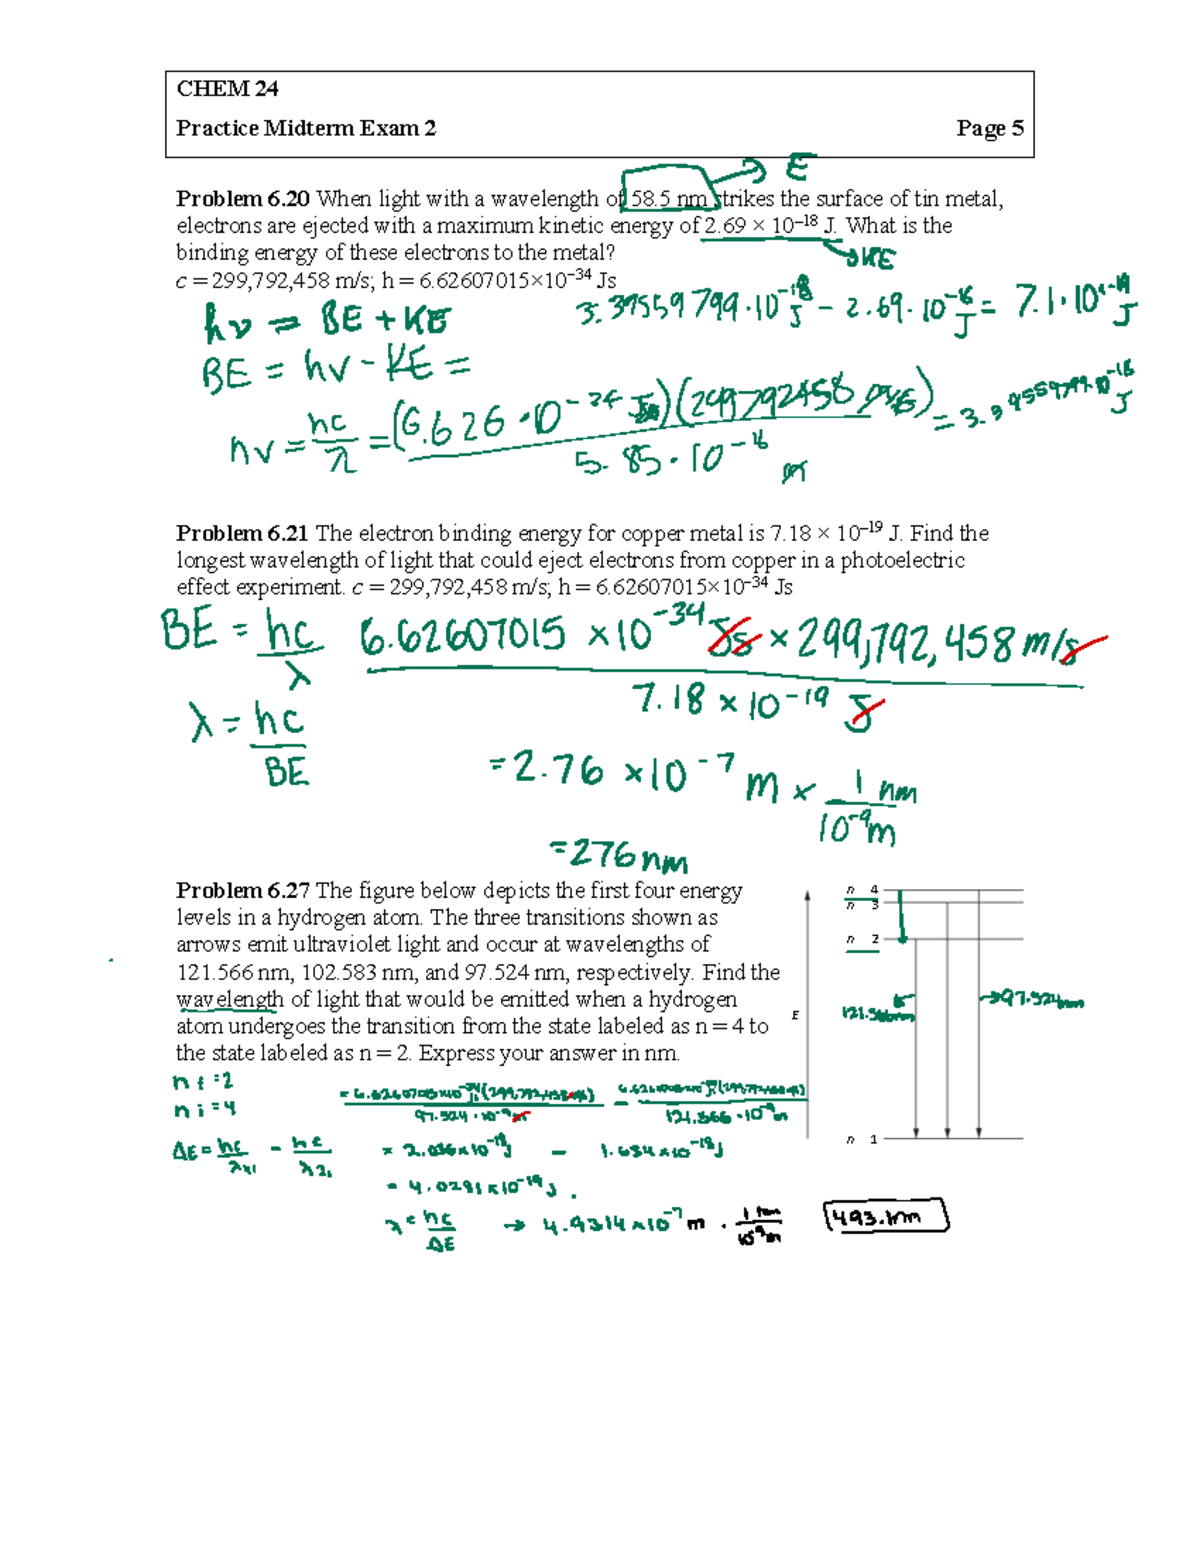 CHEM 24
Practice Midterm Exam 2 Page 5
E
Problem 6.20 When light with a wavelength of 58.5 nm strikes the surface of tin metal,
electrons are ejected with a maximum kinetic energy of 2.69 × 10⁻¹⁸ J. What is the
binding energy of these electrons to the metal?
KE
c = 299,792,458 m/s; h = 6.62607015×10⁻³⁴ Js
3.39559799·10⁻¹⁸ J − 2.69·10⁻¹⁸ J = 7.1·10⁻¹⁹ J
hν = BE + KE
BE = hν − KE =
hν = hc/λ = (6.626·10⁻³⁴ Js)(299792458 m/s) / 5.85·10⁻¹⁸ m = 3.39559799·10⁻¹⁸ J
Problem 6.21 The electron binding energy for copper metal is 7.18 × 10⁻¹⁹ J. Find the
longest wavelength of light that could eject electrons from copper in a photoelectric
effect experiment. c = 299,792,458 m/s; h = 6.62607015×10⁻³⁴ Js
BE = hc/λ
6.62607015 ×10⁻³⁴ Js × 299,792,458 m/s
7.18 × 10⁻¹⁹ J
λ = hc/BE
= 2.76 ×10⁻⁷ m × 1 nm/10⁻⁹m
= 276 nm
Problem 6.27 The figure below depicts the first four energy
levels in a hydrogen atom. The three transitions shown as
arrows emit ultraviolet light and occur at wavelengths of
121.566 nm, 102.583 nm, and 97.524 nm, respectively. Find the
wavelength of light that would be emitted when a hydrogen
atom undergoes the transition from the state labeled as n = 4 to
the state labeled as n = 2. Express your answer in nm.
n 4
n 3
n 2
121.566nm
97.524nm
E
n 1
nf = 2
ni = 4
ΔE = hc/λ41 − hc/λ21
97.524·10⁻⁹m
121.566·10⁻⁹m
= 2.036×10⁻¹⁸J − 1.634×10⁻¹⁸J
= 4.0281×10⁻¹⁹J.
λ = hc/ΔE → 4.9314×10⁻⁷ m · 1 nm/10⁻⁹m
493.1nm